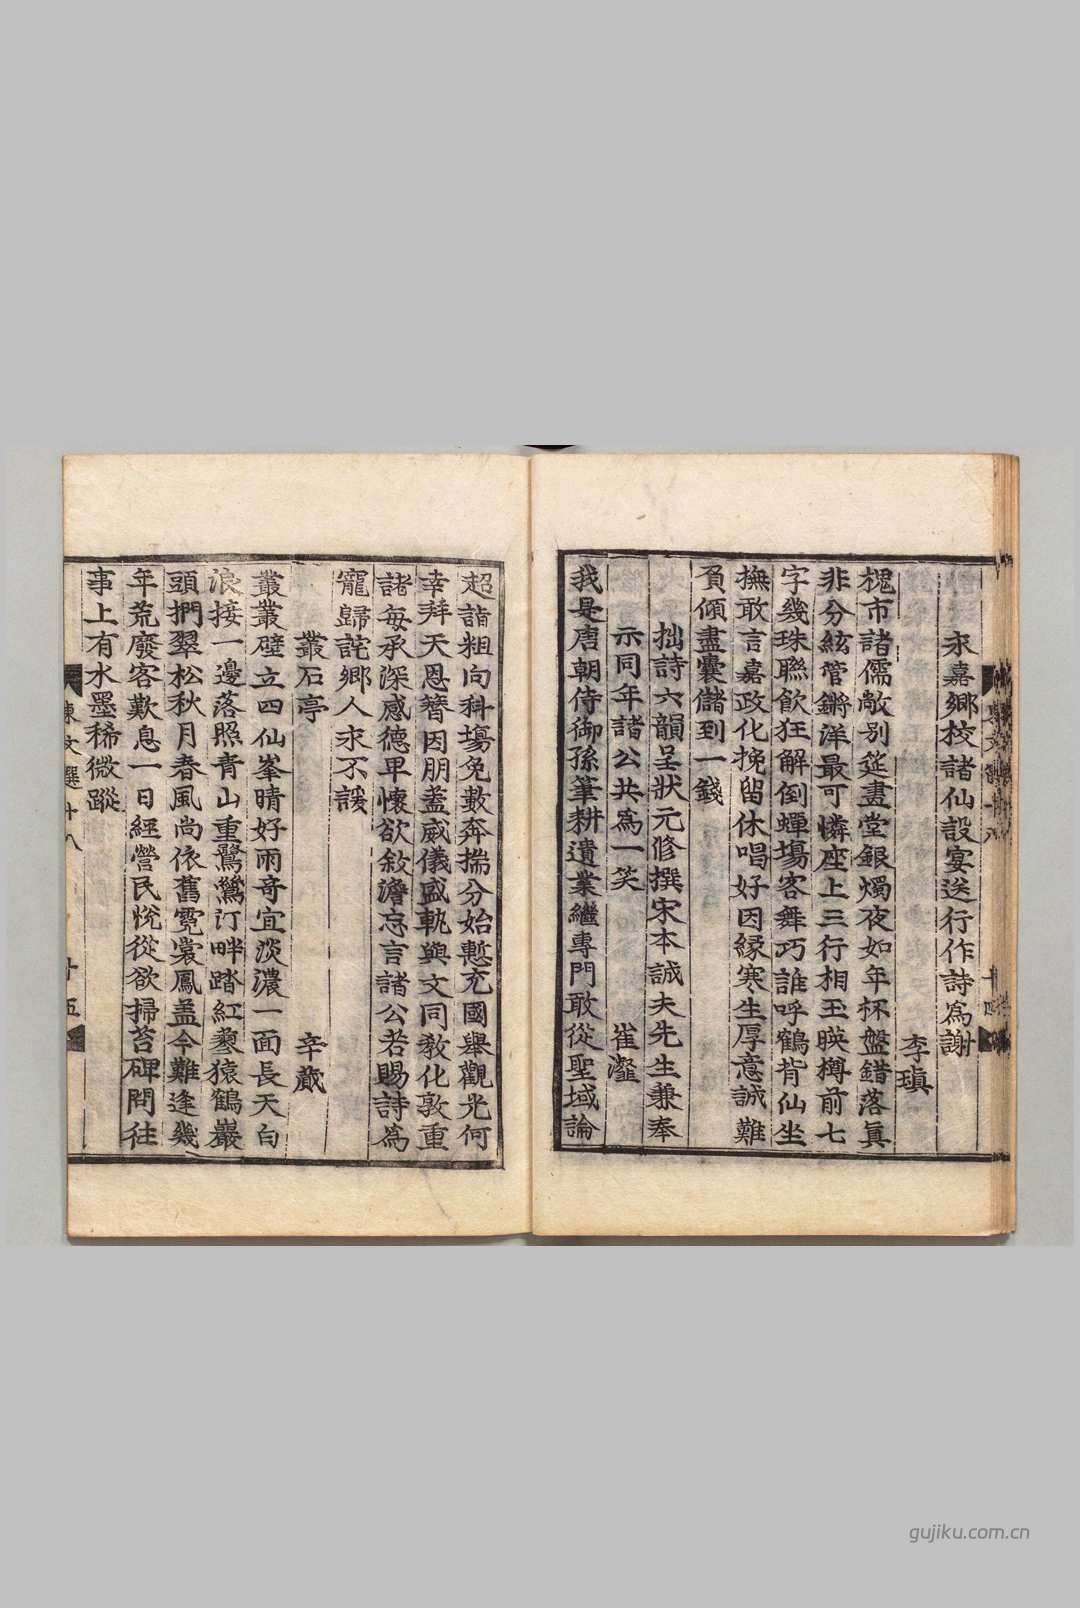 永嘉鄕校諸仙設宴送行作詩爲謝
李瑱
槐市諸儒敞別筵畫堂銀燭夜如年杯盤錯落眞
非分絃管鏘洋最可憐座上三行相玉暎樽前七
字幾珠聯飮狂解倒蟬塲客舞巧誰呼鶴背仙坐
撫敢言嘉政化挽留休唱好因緣寒生厚意誠難
負傾盡囊儲到一錢
拙詩六韻呈狀元修撰宋本誠夫先生兼奉
示同年諸公共爲一笑
崔瀣
我是唐朝侍御孫筆耕遺業繼專門敢從聖域論
東文選十八
十四
超詣粗向科塲免數奔揣分始慙充國擧觀光何
幸拜天恩簪因朋盍威儀盛軌與文同敎化敦重
諸每承深感德卑懷欲敍澹忘言諸公若賜詩爲
寵歸詫鄕人永不諼
叢石亭
辛蕆
叢叢壁立四仙峯晴好雨奇宜淡濃一面長天白
浪接一邊落照靑山重鷺鷥汀畔踏紅蓼猿鶴巖
頭捫翠松秋月春風尙依舊霓裳鳳盖今難逢幾
年荒廢客歎息一日經營民悅從欲掃苔碑問往
事上有水墨稀微蹤
東文選十八
十五
gujiku.com.cn